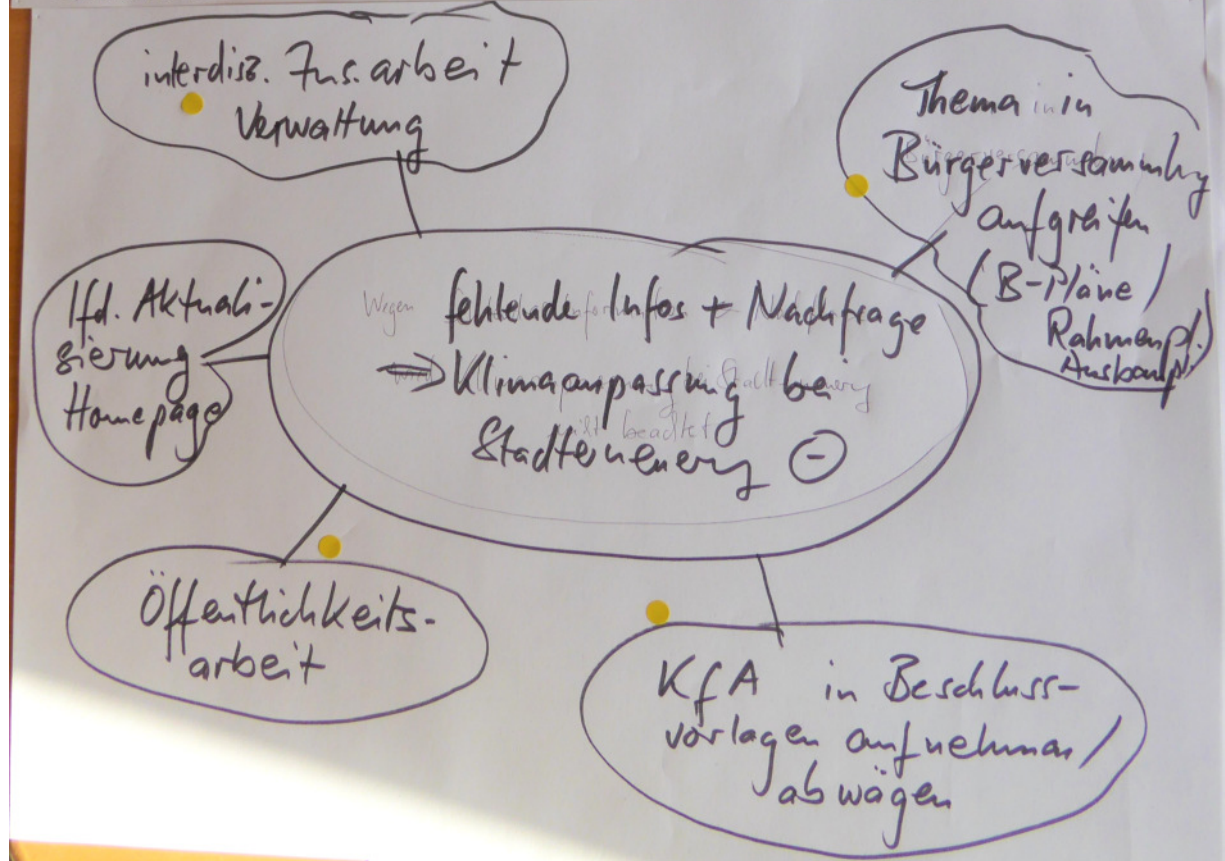 interdisz. Zus.arbeit
Verwaltung
Thema in in
Bürgerversammlung
aufgreifen
(B-Pläne/
Rahmenpl.
Ausbaupl.
lfd. Aktuali-
sierung
Homepage
fehlende Infos + Nachfrage
⇒ Klimaanpassung bei
Stadterneuerg ⊖
Wegen
beachtet
Öffentlichkeits-
arbeit
KfA in Beschluss-
vorlagen aufnehmen/
abwägen